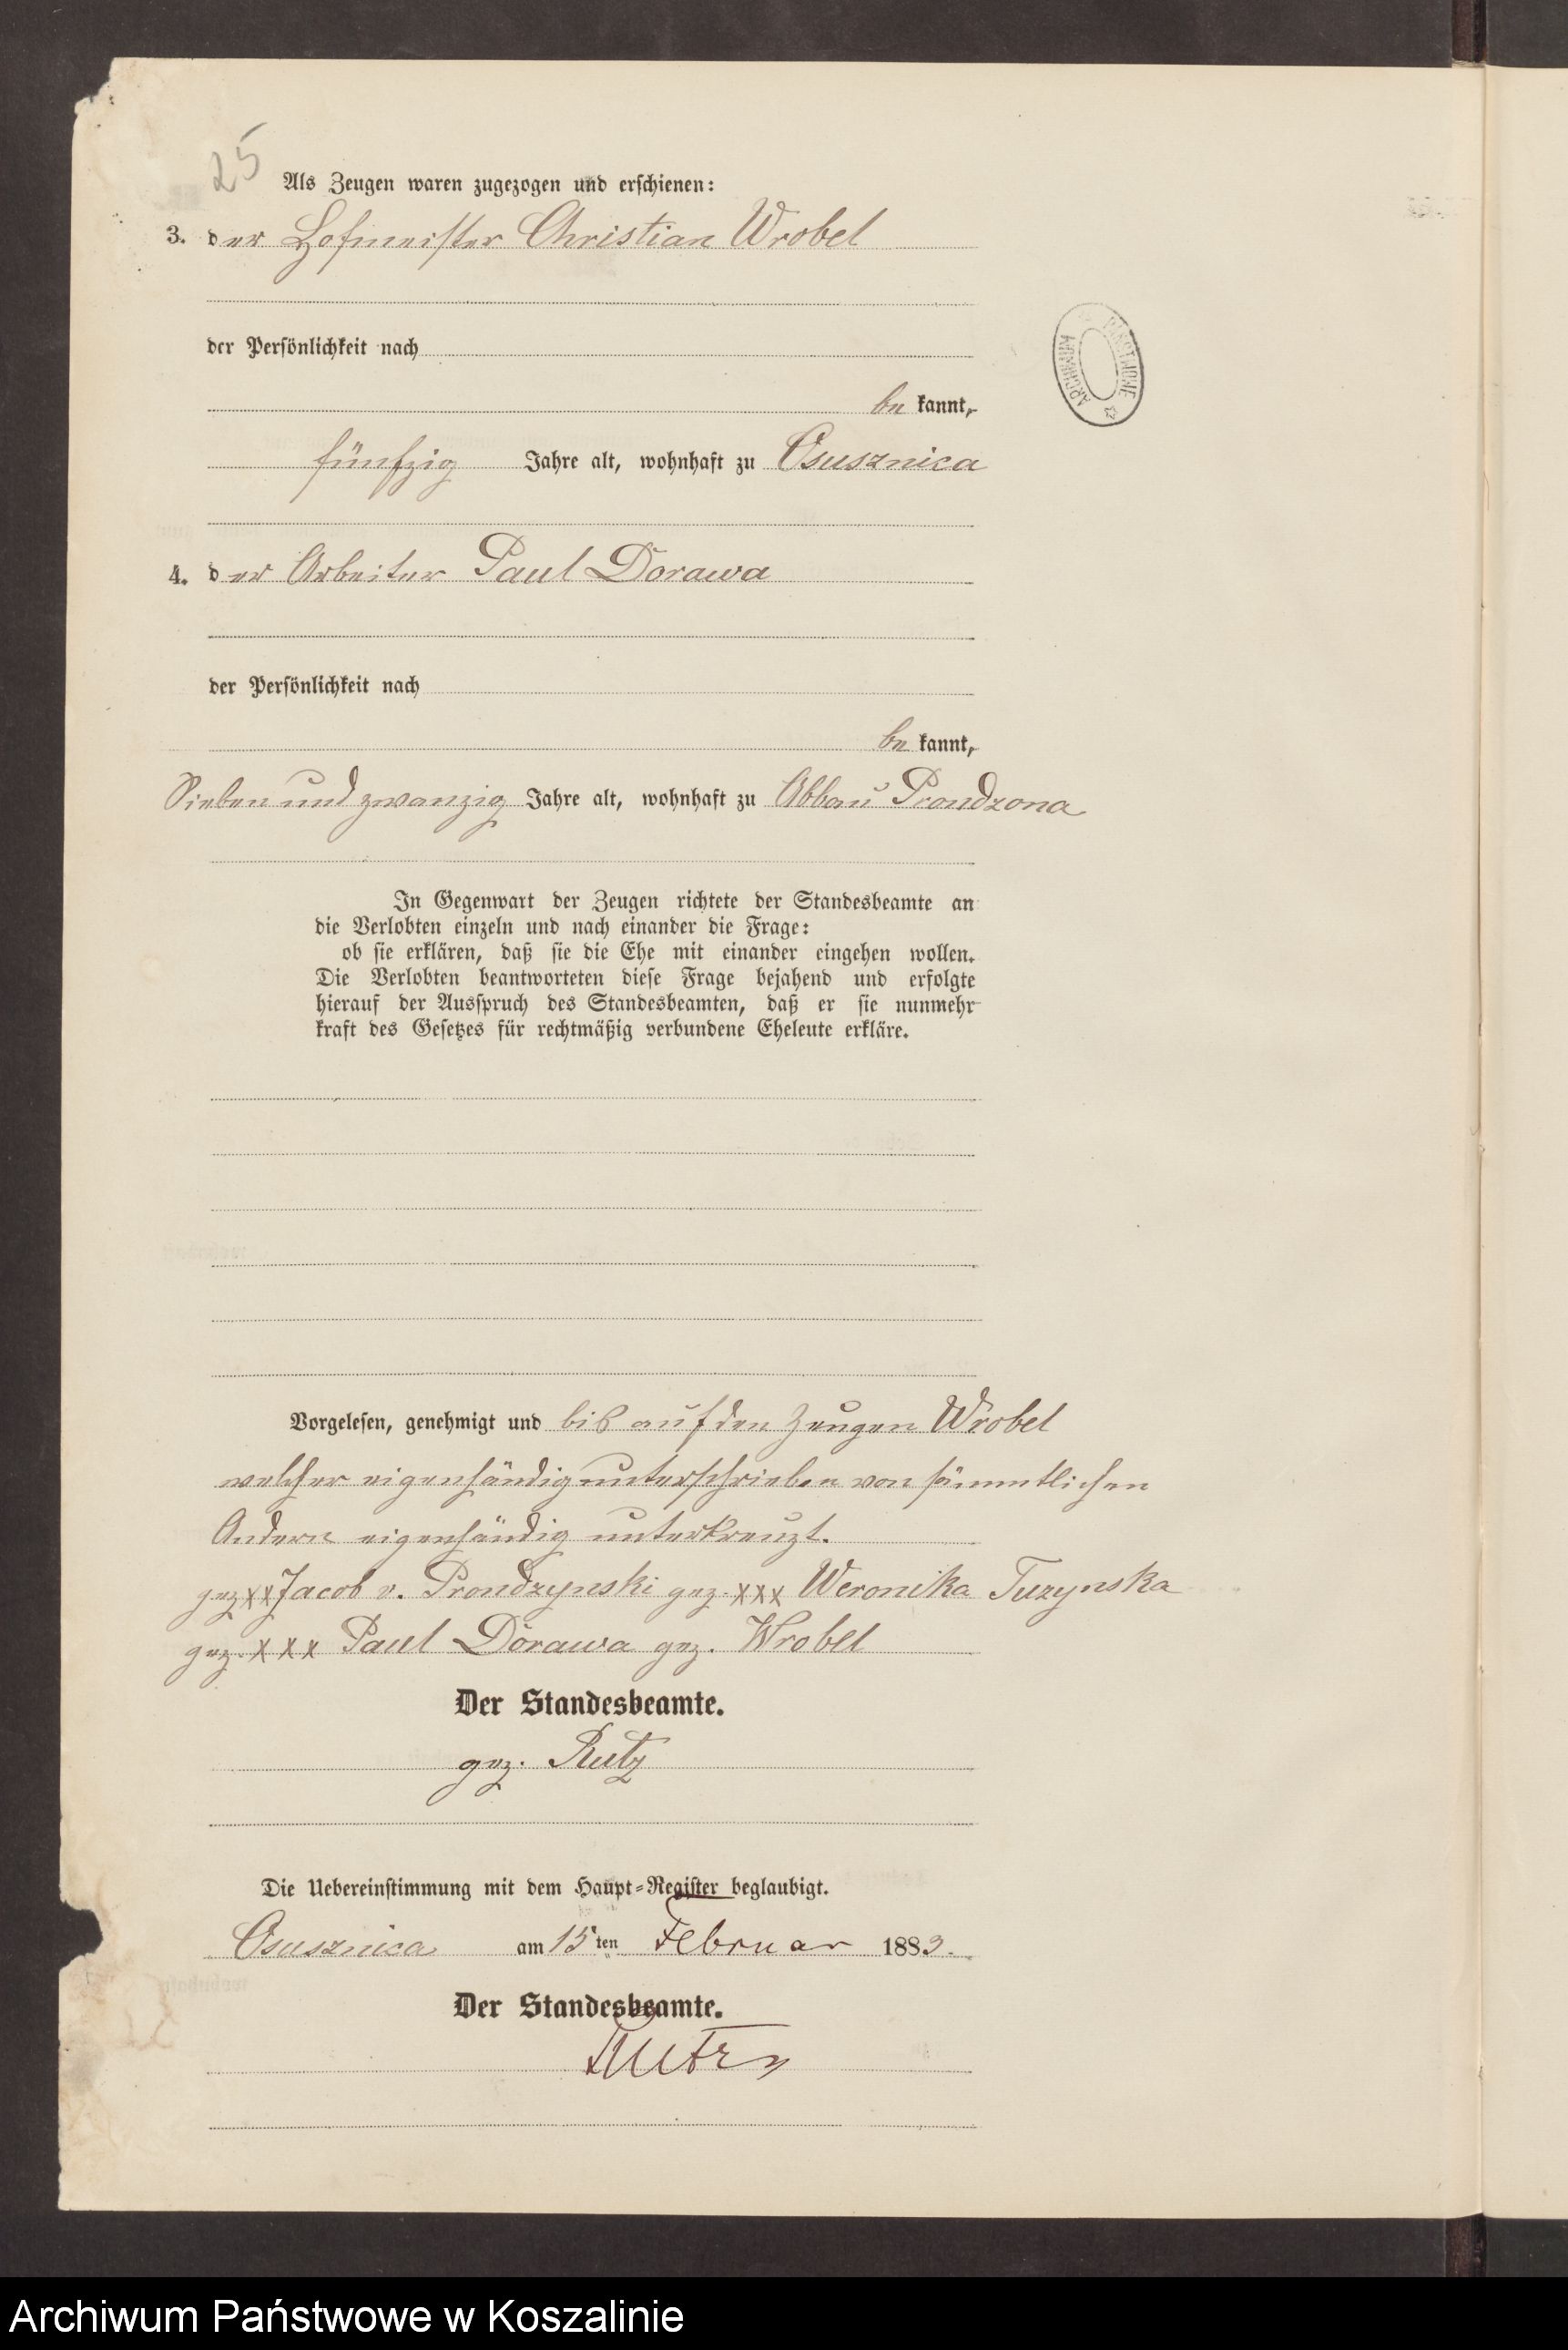 25
Als Zeugen waren zugezogen und erschienen:
3. der Hofmeister Christian Wrobel
der Persönlichkeit nach
be kannt,
fünfzig Jahre alt, wohnhaft zu Osusznica
4. der Arbeiter Paul Dorawa
der Persönlichkeit nach
be kannt,
Sieben und zwanzig Jahre alt, wohnhaft zu Abbau Prondzona
In Gegenwart der Zeugen richtete der Standesbeamte an
die Verlobten einzeln und nach einander die Frage:
ob sie erklären, daß sie die Ehe mit einander eingehen wollen.
Die Verlobten beantworteten diese Frage bejahend und erfolgte
hierauf der Ausspruch des Standesbeamten, daß er sie nunmehr
kraft des Gesetzes für rechtmäßig verbundene Eheleute erkläre.
Vorgelesen, genehmigt und bis auf den Zeugen Wrobel
welcher eigenhändig unterschrieben von sämmtlichen
Andern eigenhändig unterkreuzt.
gez xx Jacob v. Prondzynski gez. xxx Weronika Tuzynska
gez. xxx Paul Dorawa gez. Wrobel
Der Standesbeamte.
gez. Rutz
Die Uebereinstimmung mit dem Haupt-Register beglaubigt.
Osusznica am 15ten Februar 1883.
Der Standesbeamte.
Rutz
ARCHIWUM PAŃSTWOWE
Archiwum Państwowe w Koszalinie